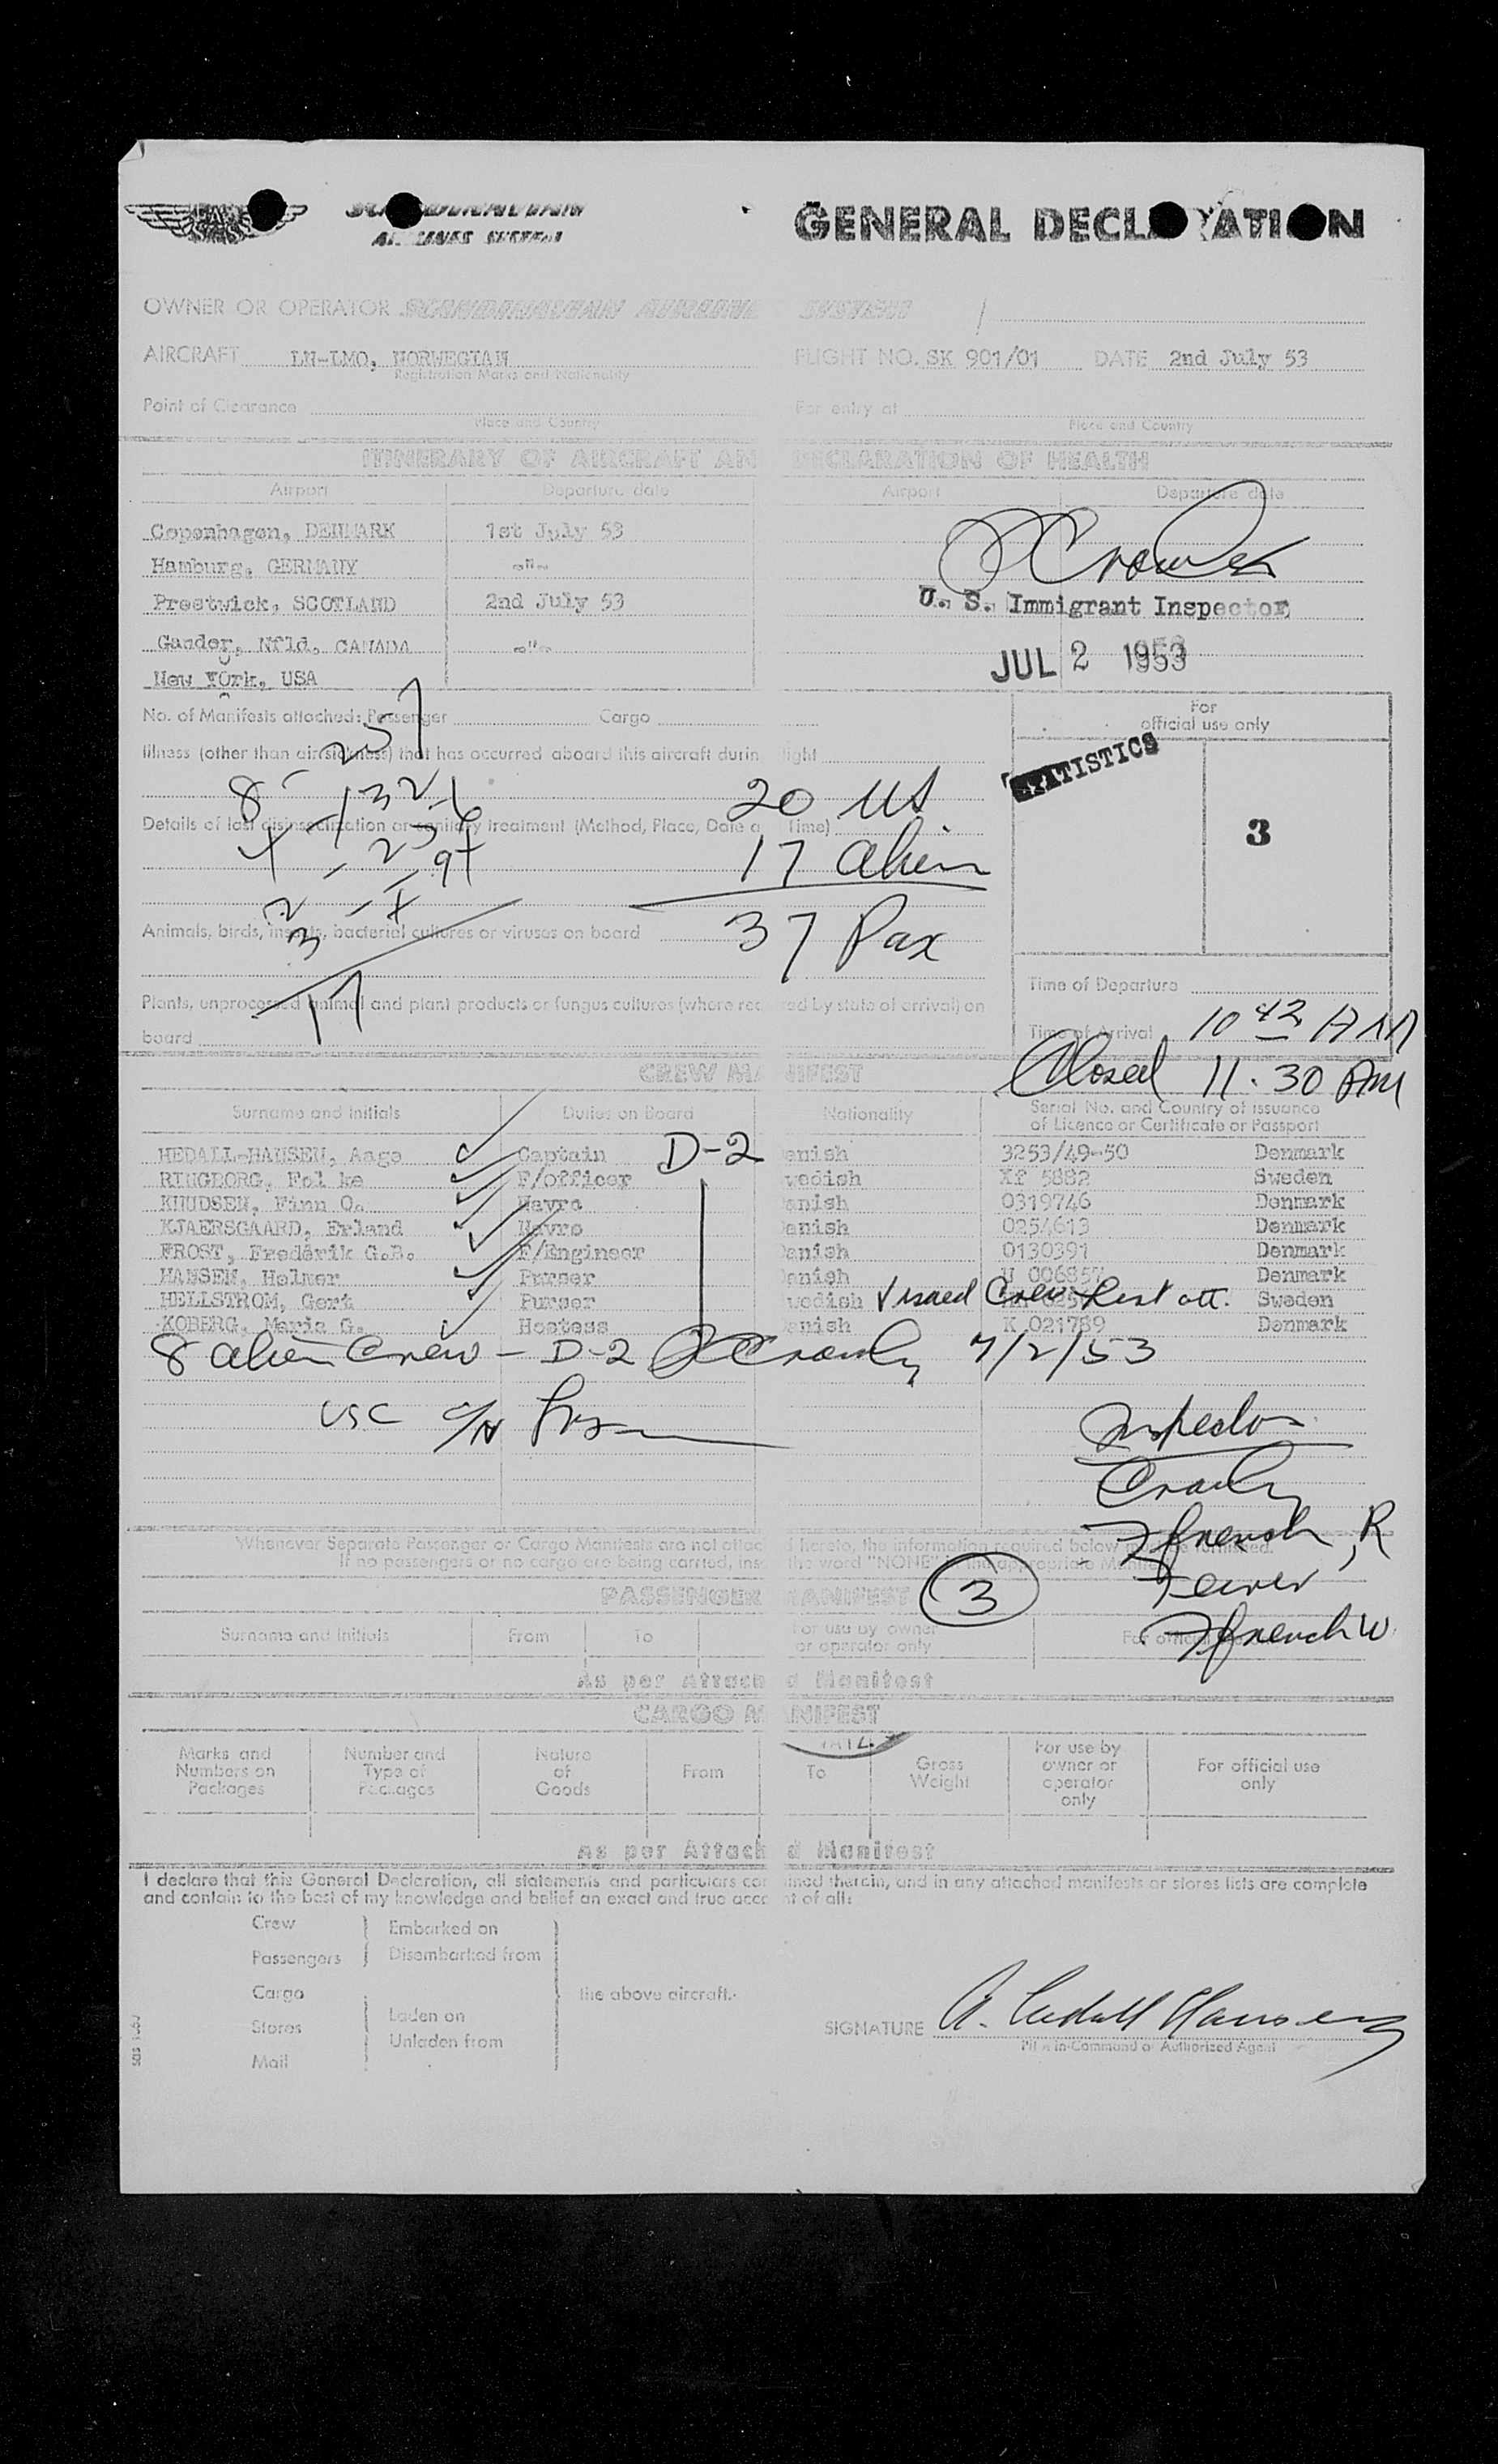 SCANDINAVIAN
AIRLINES SYSTEM
GENERAL DECLARATION
OWNER OR OPERATOR SCANDINAVIAN AIRLINE SYSTEM
AIRCRAFT LN-LMO, NORWEGIAN FLIGHT NO. SK 901/01 DATE 2nd July 53
Registration Marks and Nationality
Point of Clearance For entry at
Place and Country Place and Country
ITINERARY OF AIRCRAFT AN DECLARATION OF HEALTH
Airport Departure date Airport Departure date
Copenhagen, DENMARK 1st July 53
Hamburg, GERMANY -"-
Prestwick, SCOTLAND 2nd July 53
U. S. Immigrant Inspector
Gander, Nfld, CANADA -"-
JUL 2 1953
New York, USA
No. of Manifests attached: Passenger Cargo
For
official use only
Illness (other than airsickness) that has occurred aboard this aircraft durin flight
STATISTICS
20 US
3
Details of last disinsectization or sanitary treatment (Method, Place, Date a Time)
17 Alien
37 Pax
Animals, birds, insects, bacterial cultures or viruses on board
17
Time of Departure
Plants, unprocessed animal and plant products or fungus cultures (where rec ed by state of arrival) on
board
Time of Arrival 10 42 AM
Closed 11.30 AM
CREW MA NIFEST
Surname and Initials Duties on Board Nationality Serial No. and Country of issuance
of Licence or Certificate or Passport
HEDALL-HANSEN, Aage Captain D-2 anish 3253/49-50 Denmark
RINGBORG, Fol ke F/officer wedish XI 5882 Sweden
KNUDSEN, Finn O. Navro anish 0319746 Denmark
KJAERSGAARD, Erland Navro anish 0254613 Denmark
FROST, Frederik G.B. F/Engineer anish 0130391 Denmark
HANSEN, Helmer Purser anish Denmark
HELLSTROM, Gert Purser wedish Visaed Crew List att. Sweden
KOBERG, Maria G. Hostess anish K 021789 Denmark
8 alien Crew - D-2 7/2/53
USC
Inspector
Crowley
Ffrench, R
Ffrench W
Whenever Separate Passenger or Cargo Manifests are not attac d hereto, the information required below must be furnished.
If no passengers or no cargo are being carried, ins the word "NONE" in the appropriate Manifest
PASSENGER MANIFEST
3
Surname and Initials From To For use by owner
or operator only For official
As per Attach d Manifest
CARGO M NIFEST
Marks and
Numbers on
Packages Number and
Type of
Packages Nature
of
Goods From To Gross
Weight For use by
owner or
operator
only For official use
only
As per Attach d Manifest
I declare that this General Declaration, all statements and particulars con ined therein, and in any attached manifests or stores lists are complete
and contain to the best of my knowledge and belief an exact and true acco nt of all:
Crew Embarked on
Passengers Disembarked from
Cargo the above aircraft.
Stores Laden on
Unladen from
Mail
SIGNATURE A. Hedall Hansen
Pilot in-Command or Authorized Agent